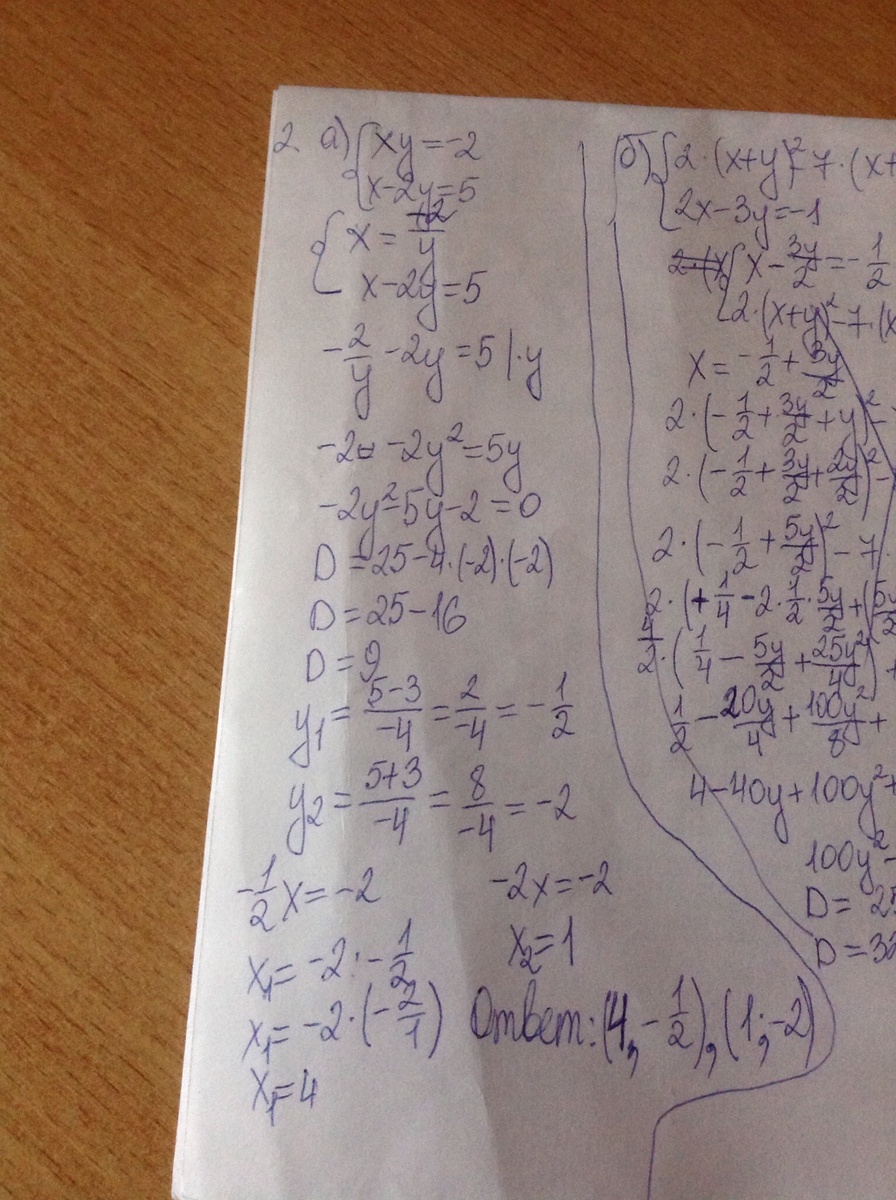 2 а) { xy = -2
x - 2y = 5
{ x = -2/y
x - 2y = 5
-2/y - 2y = 5 | · y
-2 - 2y² = 5y
-2y² - 5y - 2 = 0
D = 25 - 4 · (-2) · (-2)
D = 25 - 16
D = 9
y₁ = (5-3)/-4 = 2/-4 = -1/2
y₂ = (5+3)/-4 = 8/-4 = -2
-1/2 x = -2
x₁ = -2 : -1/2
x₁ = -2 · (-2/1)
x₁ = 4
-2x = -2
x₂ = 1
Ответ: (4; -1/2), (1; -2)
б) { 2 · (x+y)² - 7 · (x+
2x - 3y = -1
{ x - 3y/2 = -1/2
2 · (x+y)² - 7 · (x
x = -1/2 + 3y/2
2 · (-1/2 + 3y/2 + y)² -
2 · (-1/2 + 3y/2 + 2y/2)² -
2 · (-1/2 + 5y/2)² - 7 ·
2 · (+1/4 - 2 · 1/2 · 5y/2 + (5y/2
2 · (1/4 - 5y/2 + 25y²/4) +
1/2 - 20y/4 + 100y²/8 +
4 - 40y + 100y² +
100y² -
D = 25
D = 32